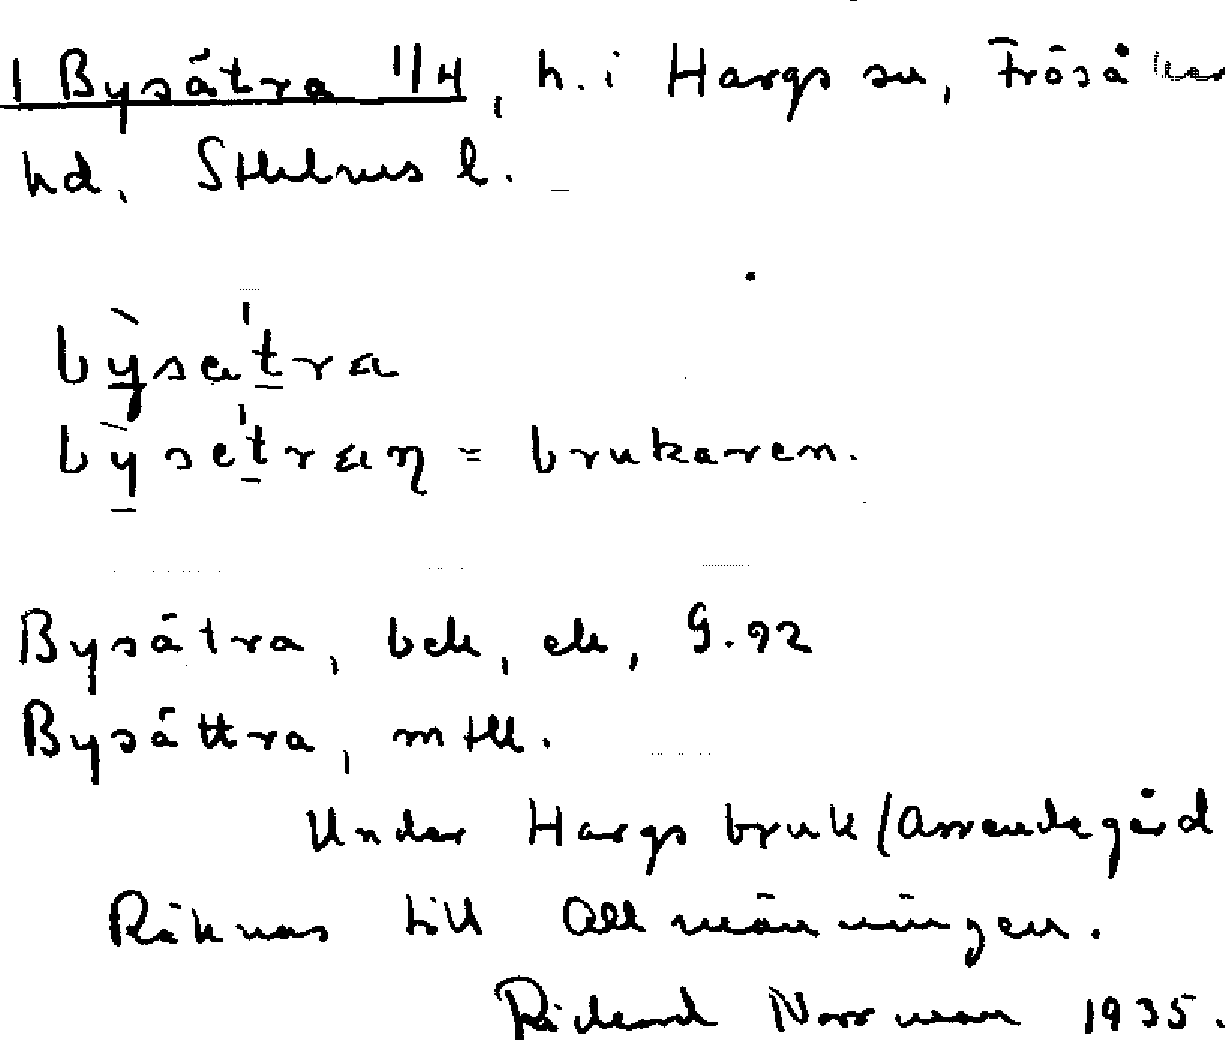 1 Bysätra 1/4, h. i Hargs sn, Frösåker
hd. Sthlms l.
bỳsatra
bỳsetraη = brukaren.
Bysätra, bek, ek, G. 92
Bysättra, mtll.
Under Hargs bruk/Arrendegård
Räknas till Allmänningen.
Rickard Norrman 1935.